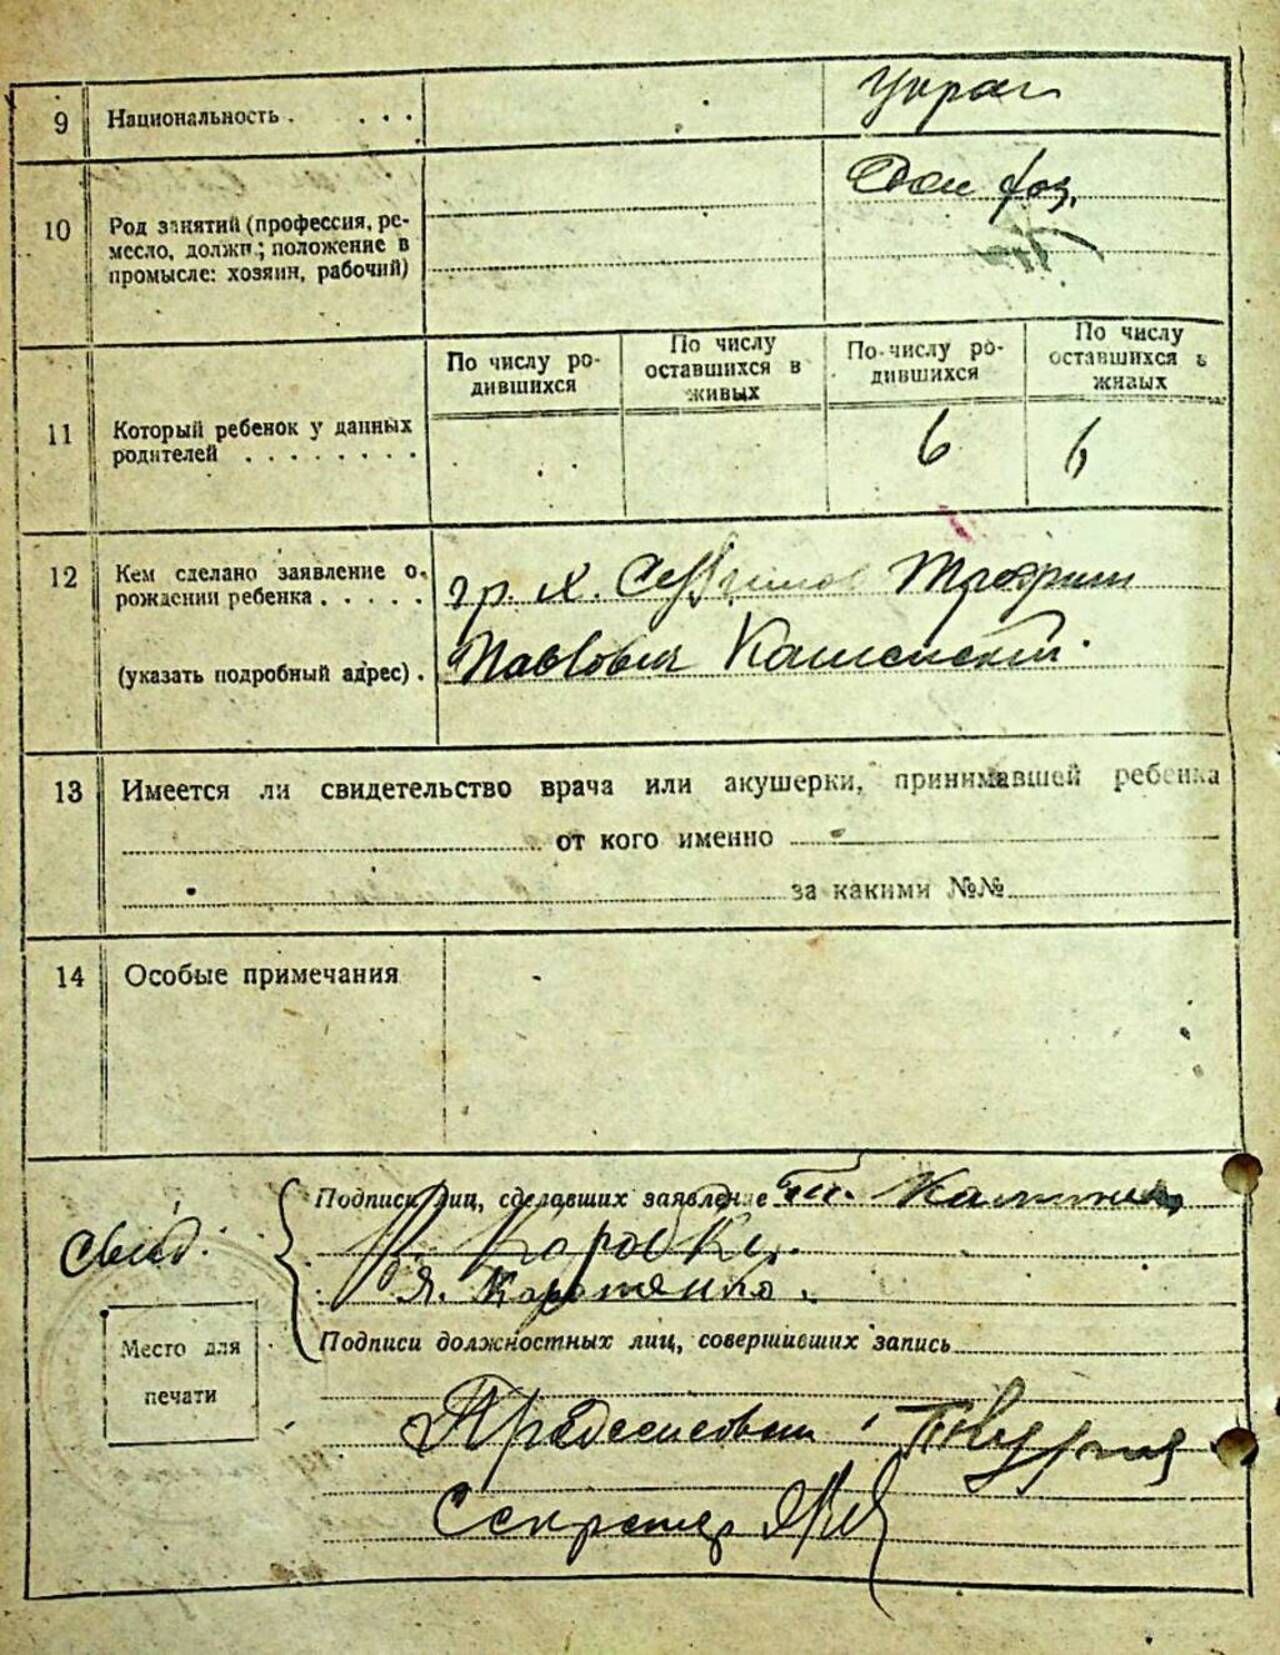 9 Национальность . . . . Украи
10 Род занятий (профессия, ре-
месло, должн.; положение в
промысле: хозяин, рабочий)
Дом хоз.
По числу ро-
дившихся
По числу
оставшихся в
живых
По числу ро-
дившихся
По числу
оставшихся в
живых
11 Который ребенок у данных
родителей . . . . . . . . 6 6
12 Кем сделано заявление о
рождении ребенка . . . . .
(указать подробный адрес) .
гр. х. Трофим
Павлович Каменский.
13 Имеется ли свидетельство врача или акушерки, принимавшей ребенка
от кого именно
за какими №№
14 Особые примечания
Подписи лиц, сделавших заявление
Свид.
Я.
Подписи должностных лиц, совершивших запись
Место для
печати
Секретарь